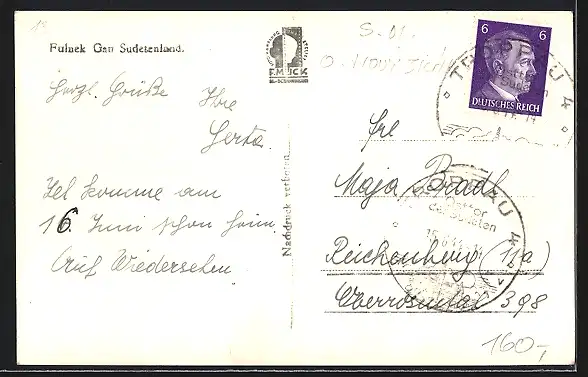 Fulnek Gau Sudetenland.
Herzl. Grüße Ihre
Gerta.
Ich komme am
16. Juni schon heim.
Auf Wiedersehen
Nachdruck verboten
F. MÜCK
6 6
DEUTSCHES REICH
TROPPAU 4
Frl
Maja Bradl
TROPPAU 4
der Sudeten
Reichenberg (11a)
Oberrosental 398
160,-